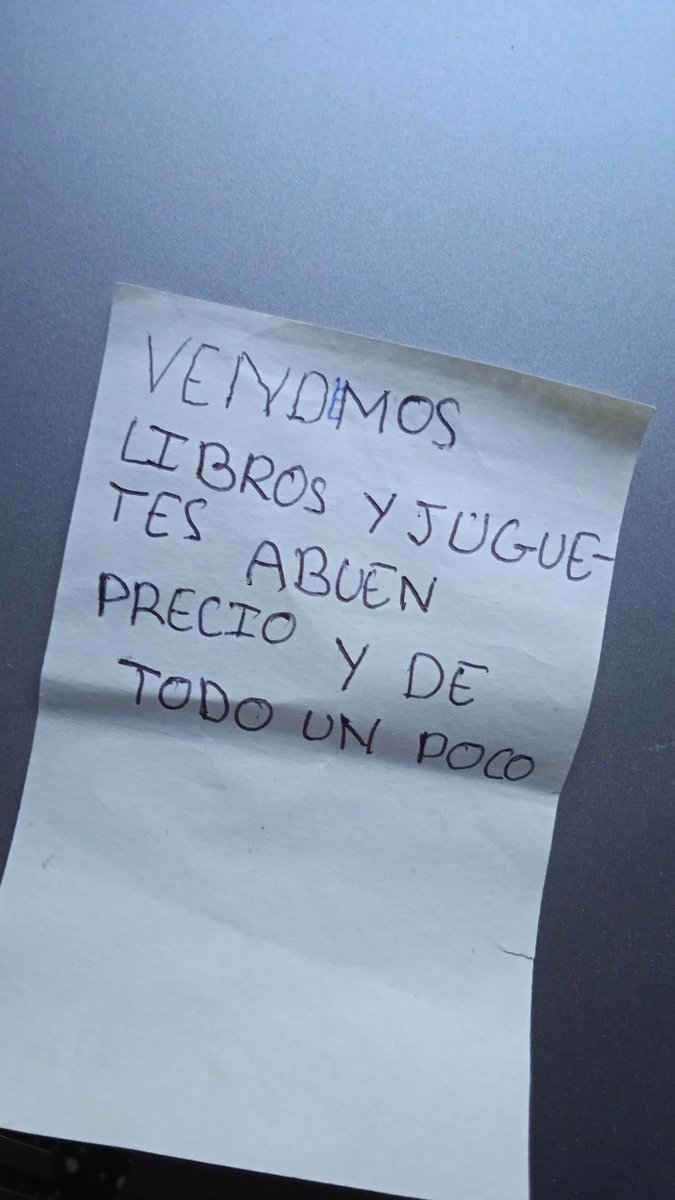 VENDEMOS
LIBROS Y JUGUE-
TES ABUEN
PRECIO Y DE
TODO UN POCO